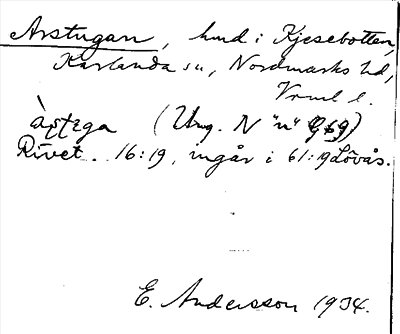 Arstugan, hmd i Kjesebotten,
Karlanda sn, Nordmarks hd,
Vrml l.
(Ung. N "n" 69)
Rivet. 16:19, ingår i 61:19 Lövås.
E. Andersson 1934.